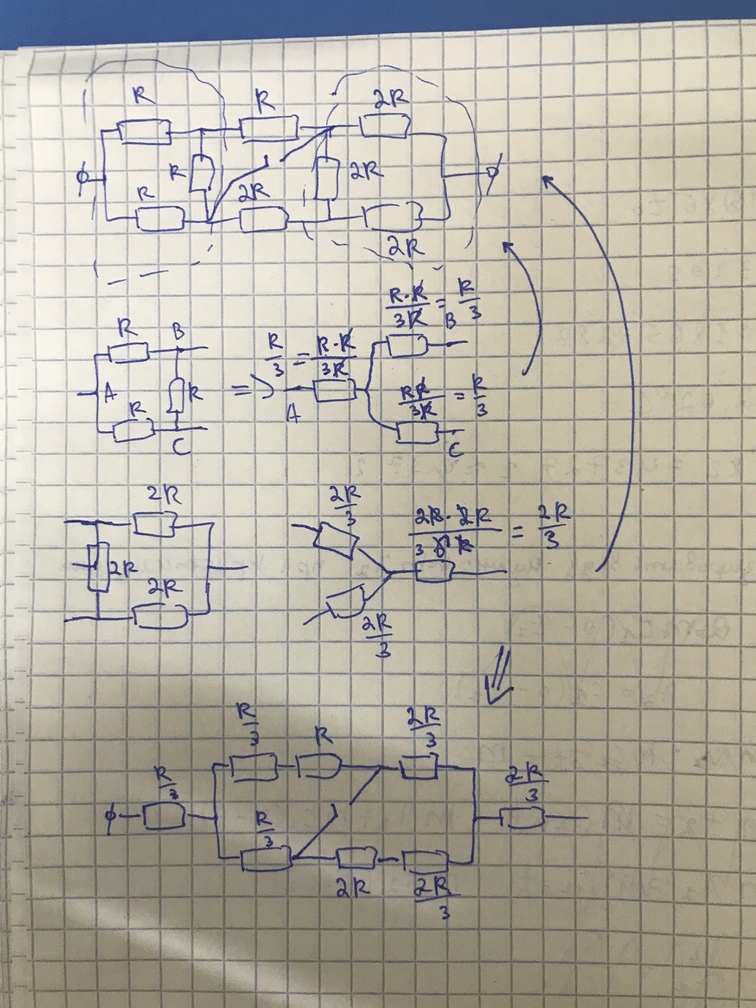 R R 2R
R 2R 2R
R 2R
R B R·R/3R = R/3 B
R/3 = R·R/3R
A R R => A RR/3R = R/3
C C
2R 2R/3 2R·2R/3·2R = 2R/3
2R
2R 2R/3
R/3 R 2R/3
R/3 2R/3
R/3
2R 2R/3